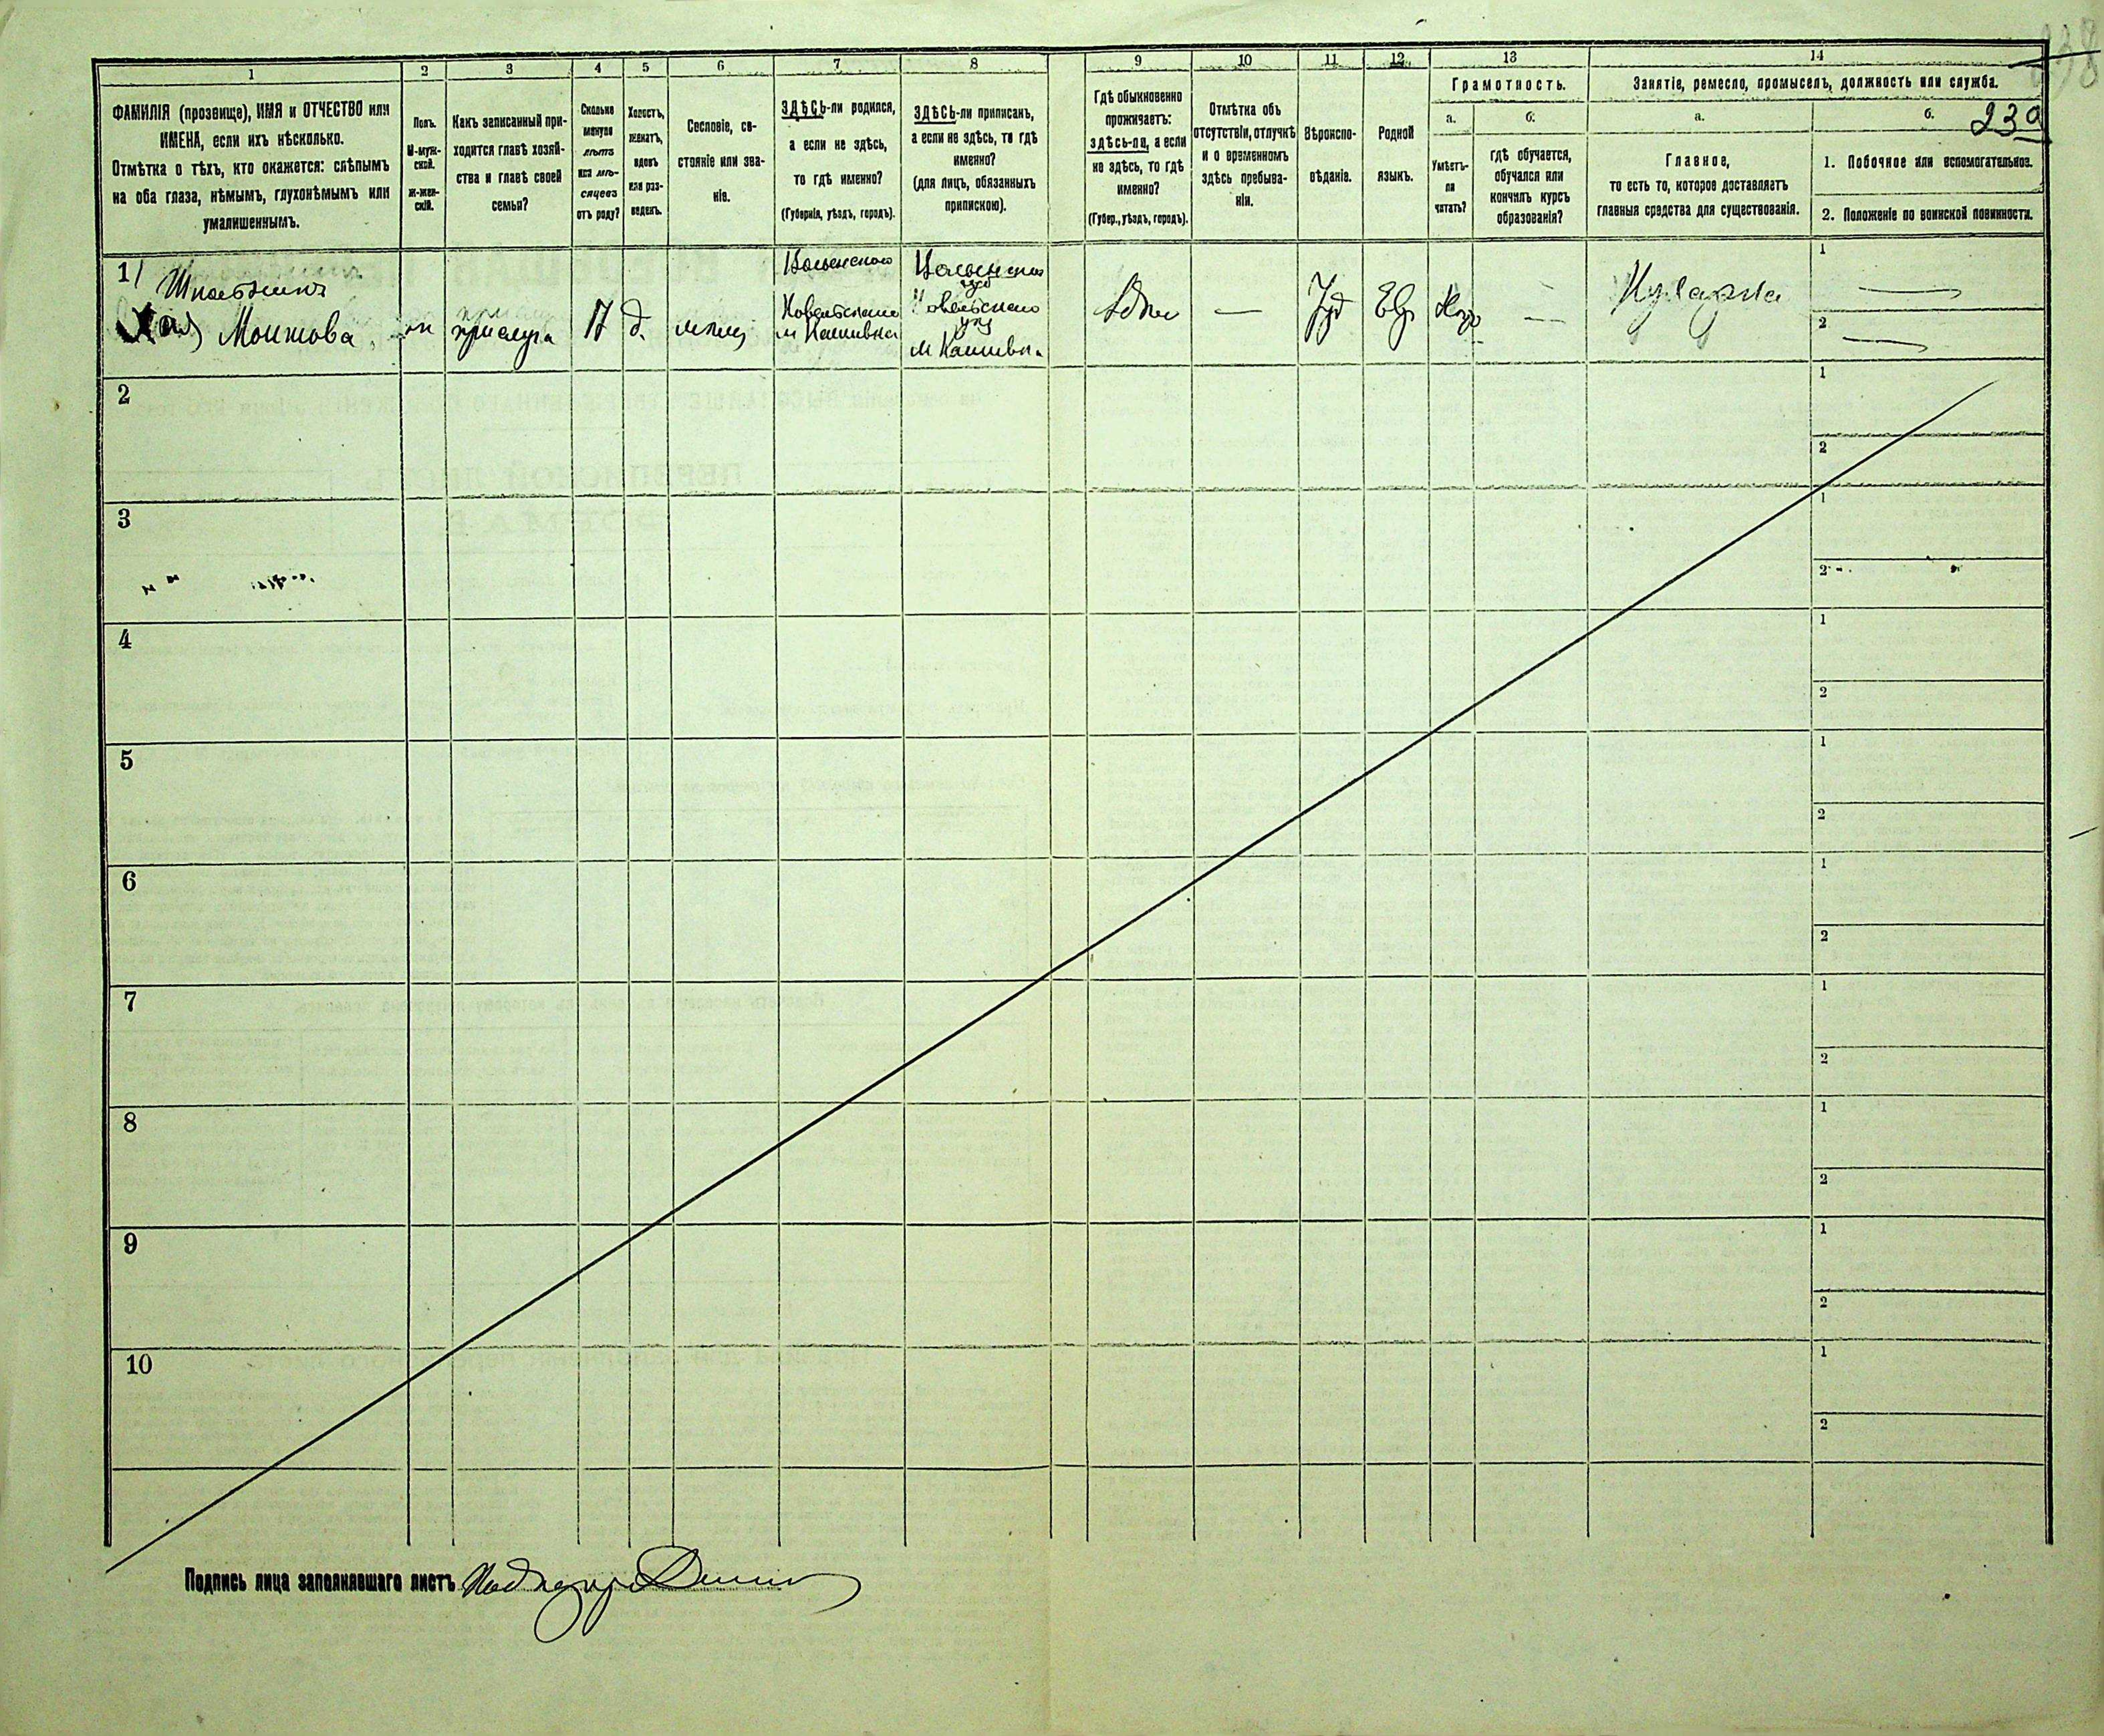 838
239
1 2 3 4 5 6 7 8 9 10 11 12 13 14
ФАМИЛІЯ (прозвище), ИМЯ и ОТЧЕСТВО или
ИМЕНА, если ихъ нѣсколько.
Отмѣтка о тѣхъ, кто окажется: слѣпымъ
на оба глаза, нѣмымъ, глухонѣмымъ или
умалишеннымъ.
Полъ.
М-муж-
ской.
Ж-жен-
скій.
Какъ записанный при-
ходится главѣ хозяй-
ства и главѣ своей
семьи?
Сколько
минуло
лѣтъ
или мѣ-
сяцевъ
отъ роду?
Холостъ,
женатъ,
вдовъ
или раз-
веденъ.
Сословіе, со-
стояніе или зва-
ніе.
ЗДѢСЬ-ли родился,
а если не здѣсь,
то гдѣ именно?
(Губернія, уѣздъ, городъ).
ЗДѢСЬ-ли приписанъ,
а если не здѣсь, то гдѣ
именно?
(для лицъ, обязанныхъ
припискою).
Гдѣ обыкновенно
проживаетъ:
здѣсь-ли, а если
не здѣсь, то гдѣ
именно?
(Губер., уѣздъ, городъ).
Отмѣтка объ
отсутствіи, отлучкѣ
и о временномъ
здѣсь пребыва-
ніи.
Вѣроиспо-
вѣданіе.
Родной
языкъ.
Грамотность.
а.
Умѣетъ-
ли
читать?
б.
гдѣ обучается,
обучался или
кончилъ курсъ
образованія?
Занятіе, ремесло, промыселъ, должность или служба.
а.
Главное,
то есть то, которое доставляетъ
главныя средства для существованія.
б.
1. Побочное или вспомогательное.
2. Положеніе по воинской повинности.
1
Мошкова
ж
прислуга
17
д.
мѣщ
Волынской
м Кашивка
Волынской
губ
м Кашивка
здѣсь
—
Іуд
Евр
—
Кухарка
1 —
2 —
2
1
2
3
1
2
4
1
2
5
1
2
6
1
2
7
1
2
8
1
2
9
1
2
10
1
2
Подпись лица заполнявшаго листъ